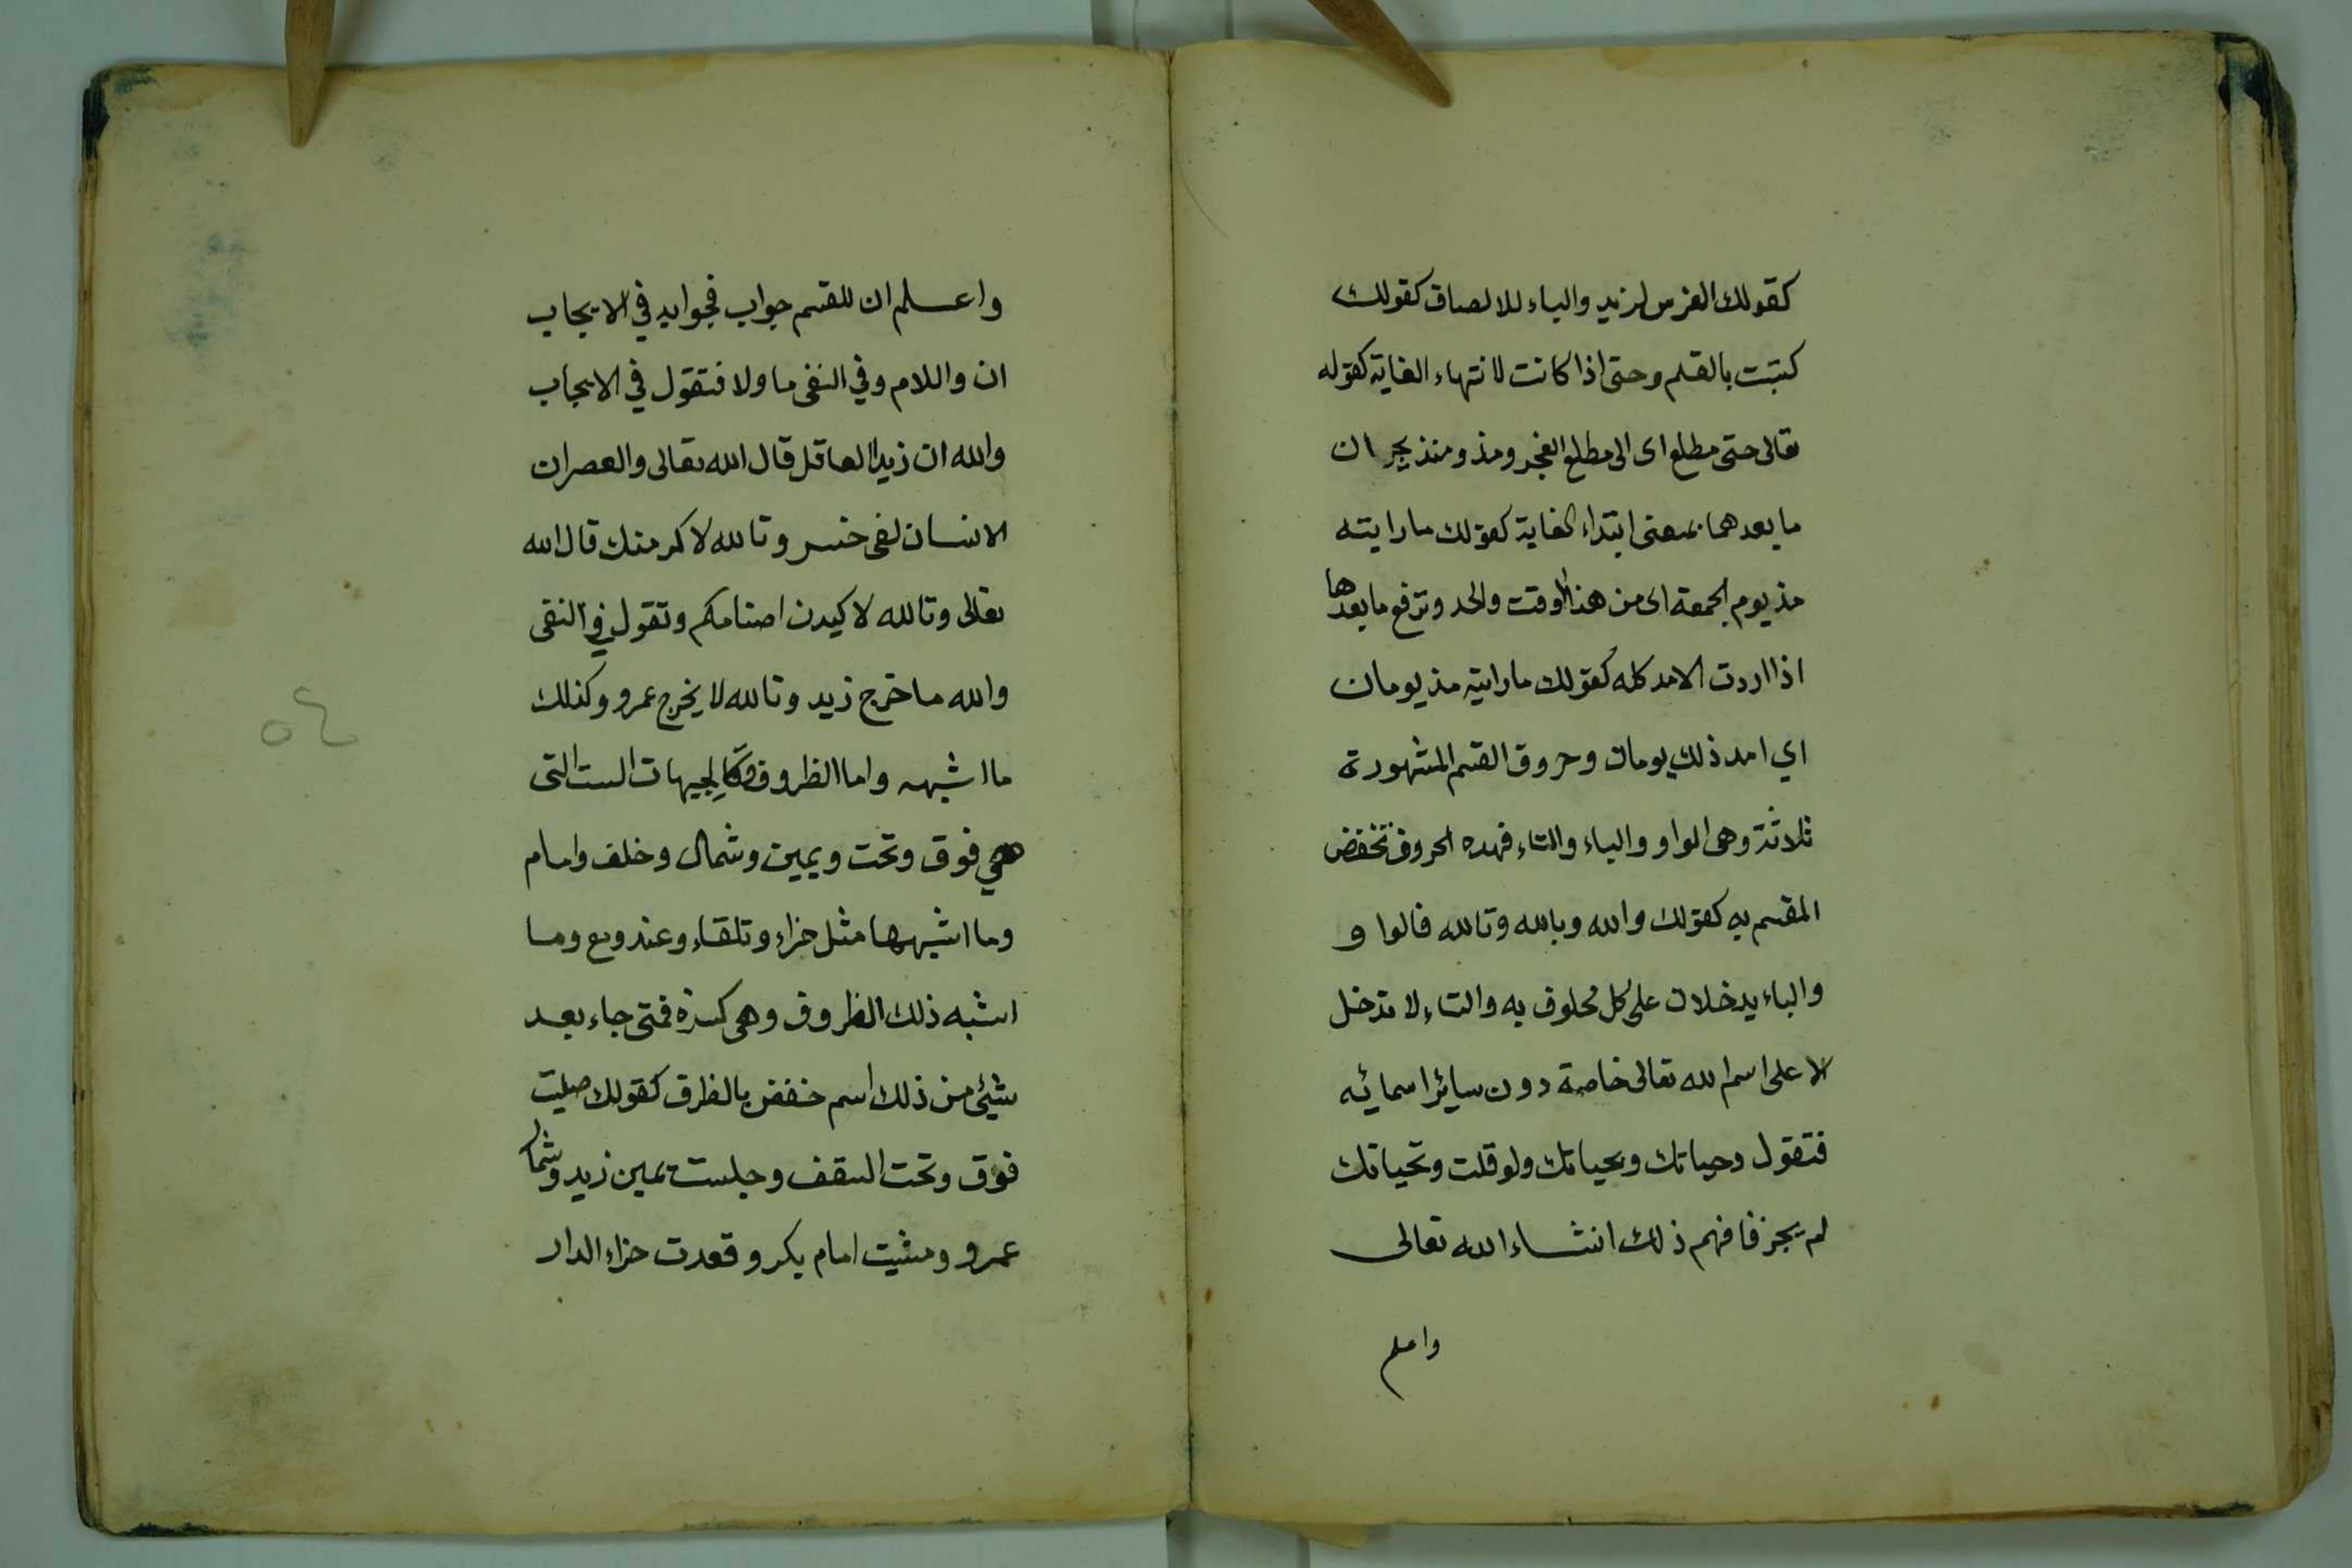 كقولك الفرس لزيد والباء للالصاق كقولك
كتبت بالقلم وحتى اذا كانت لانتهاء الغاية كقوله
تعالى حتى مطلع اى الى مطلع الفجر ومذ ومنذ يجر ان
ما بعدهما بمعنى ابتداء الغاية كقولك ما رايته
مذ يوم الجمعة اى من هذا الوقت والحد وترفع ما بعدها
اذا اردت الامد كله كقولك ما رايته مذ يومان
اي امد ذلك يومان وحروق القسم المشهورة
ثلاثة وهى الواو والباء والتاء فهده الحروف تخفض
المقسم به كقولك والله وبالله وتالله فالوا و
والباء يدخلان على كل محلوف به والتاء لا تدخل
الا على اسم الله تعالى خاصة دون سائر اسمائه
فتقول وحياتك وبحياتك ولو قلت وتحياتك
لم يجز فافهم ذلك انشاء الله تعالى
واعلم
واعلم ان للقسم جواب فجوابه في الايجاب
ان واللام وفي النفى ما ولا فتقول في الايجاب
والله ان زيدا لعاقل قال الله تعالى والعصر ان
الانسان لفى خسر وتالله لاكرمنك قال الله
تعالى وتالله لاكيدن اصنامكم وتقول في النفى
والله ما خرج زيد وتالله لا يخرج عمرو وكذلك
ما اشبهه واما الظروف فكالجيهات الست التى
هي فوق وتحت ويمين وشمال وخلف وامام
وما اشبهها مثل حزاء وتلقاء وعند ومع وما
اشبه ذلك الظروف وهى كثيرة فمتى جاء بعد
شيئ من ذلك اسم خفض بالظرف كقولك صليت
فوق وتحت السقف وجلست يمين زيد وشمال
عمرو ومشيت امام بكر وقعدت حزاء الدار
٥٤